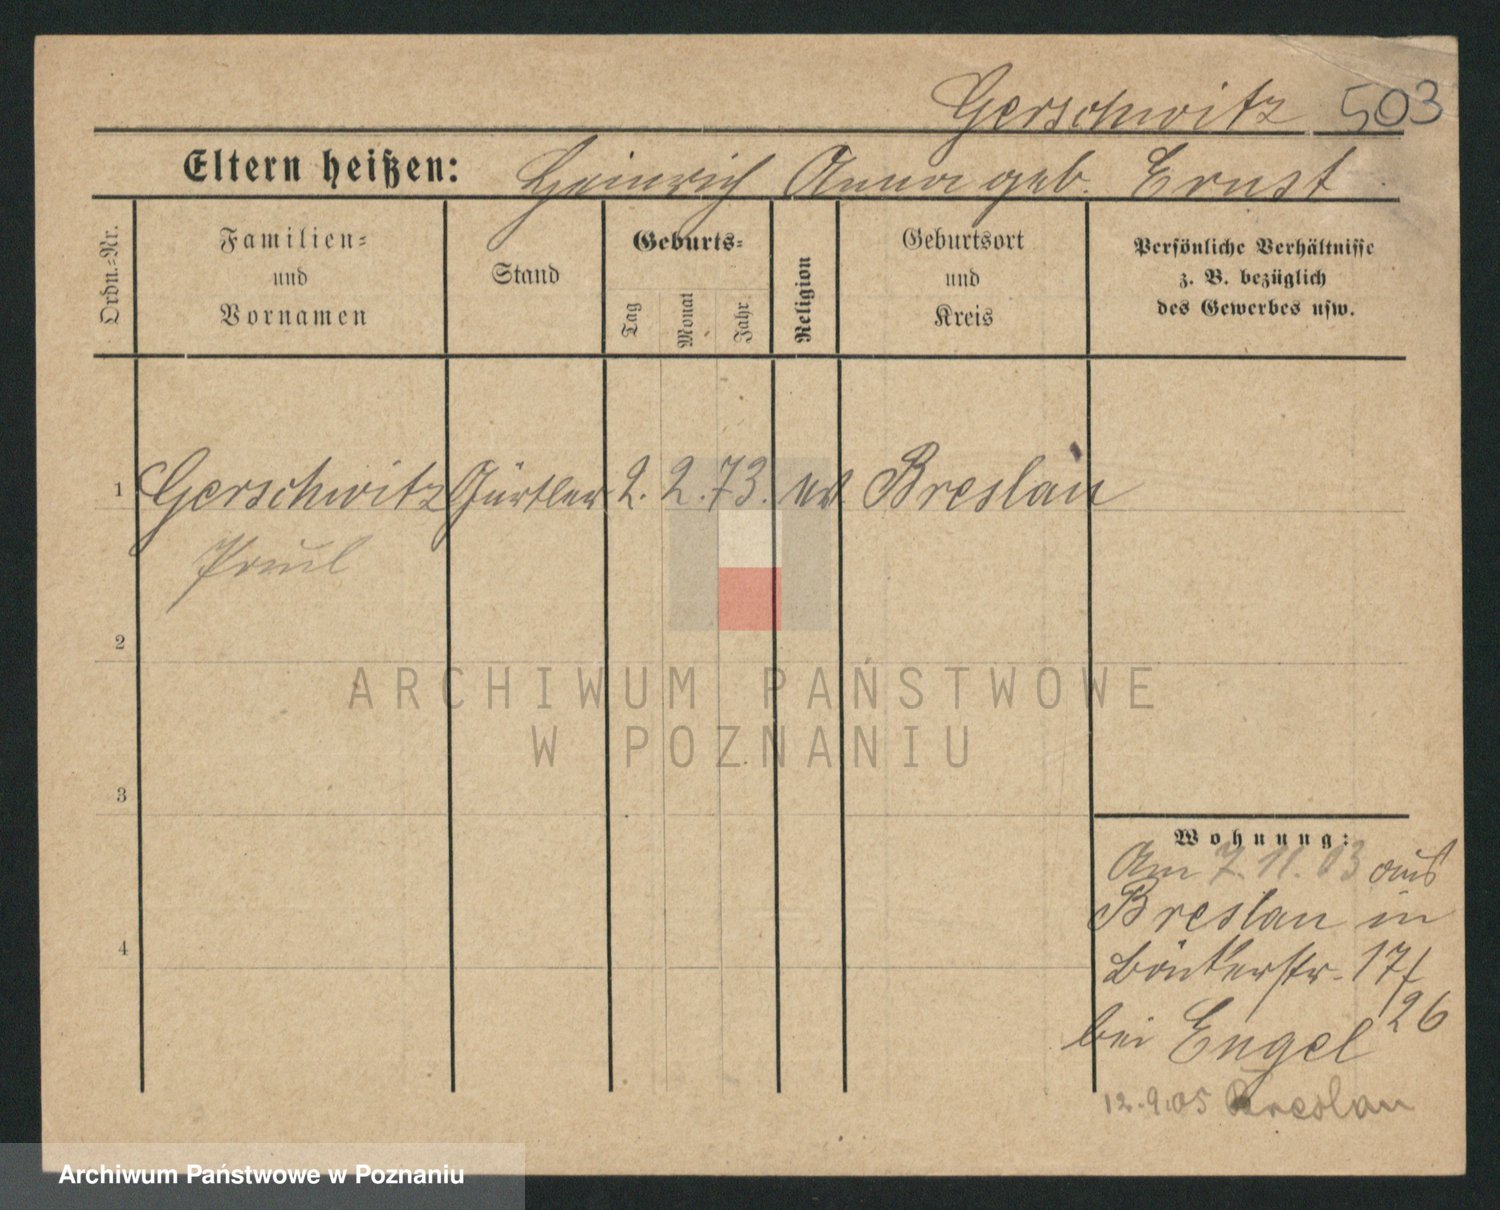 Gerschwitz 503
Eltern heißen: Heinrich Anna geb. Ernst
Ordn.-Nr.
Familien-
und
Vornamen
Stand
Geburts-
Tag
Monat
Jahr
Religion
Geburtsort
und
Kreis
Persönliche Verhältnisse
z. B. bezüglich
des Gewerbes usw.
1 Gerschwitz Gürtler 2. 2. 73. ev Breslau
Paul
2
ARCHIWUM PAŃSTWOWE
W POZNANIU
3
Wohnung:
Am 7.11.03 aus
Breslau in
17/
4
bei Engel 26
12.9.05 Breslau
Archiwum Państwowe w Poznaniu